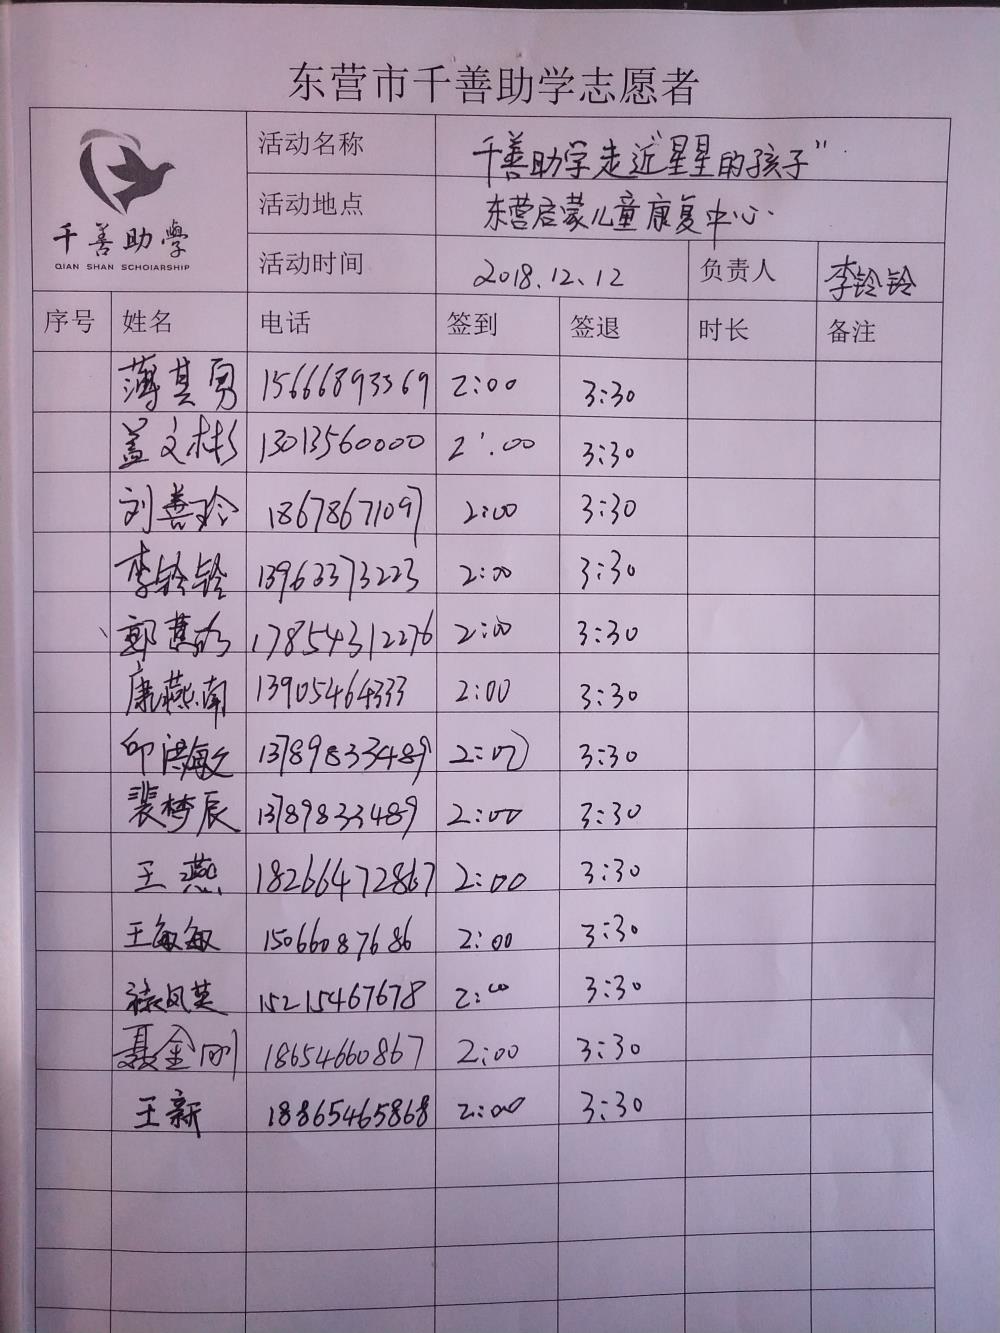 东营市千善助学志愿者
千善助學
QIAN SHAN SCHOIARSHIP
活动名称 千善助学走近"星星的孩子"
活动地点 东营启蒙儿童康复中心.
活动时间 2018.12.12 负责人 李铃铃
序号 姓名 电话 签到 签退 时长 备注
薄其勇 15666893569 2:00 3:30
盖文彬 13013560000 2:00 3:30
刘善玲 18678671097 2:00 3:30
李铃铃 13963373223 2:00 3:30
郭 17854312276 2:00 3:30
康燕南 13905464333 2:00 3:30
邱洪敏 13789833489 2:00 3:30
裴梦辰 13789833489 2:00 3:30
王燕 18266472867 2:00 3:30
王敏敏 15066087686 2:00 3:30
凤英 15215467678 2:00 3:30
聂金刚 18654660867 2:00 3:30
王新 18865465868 2:00 3:30